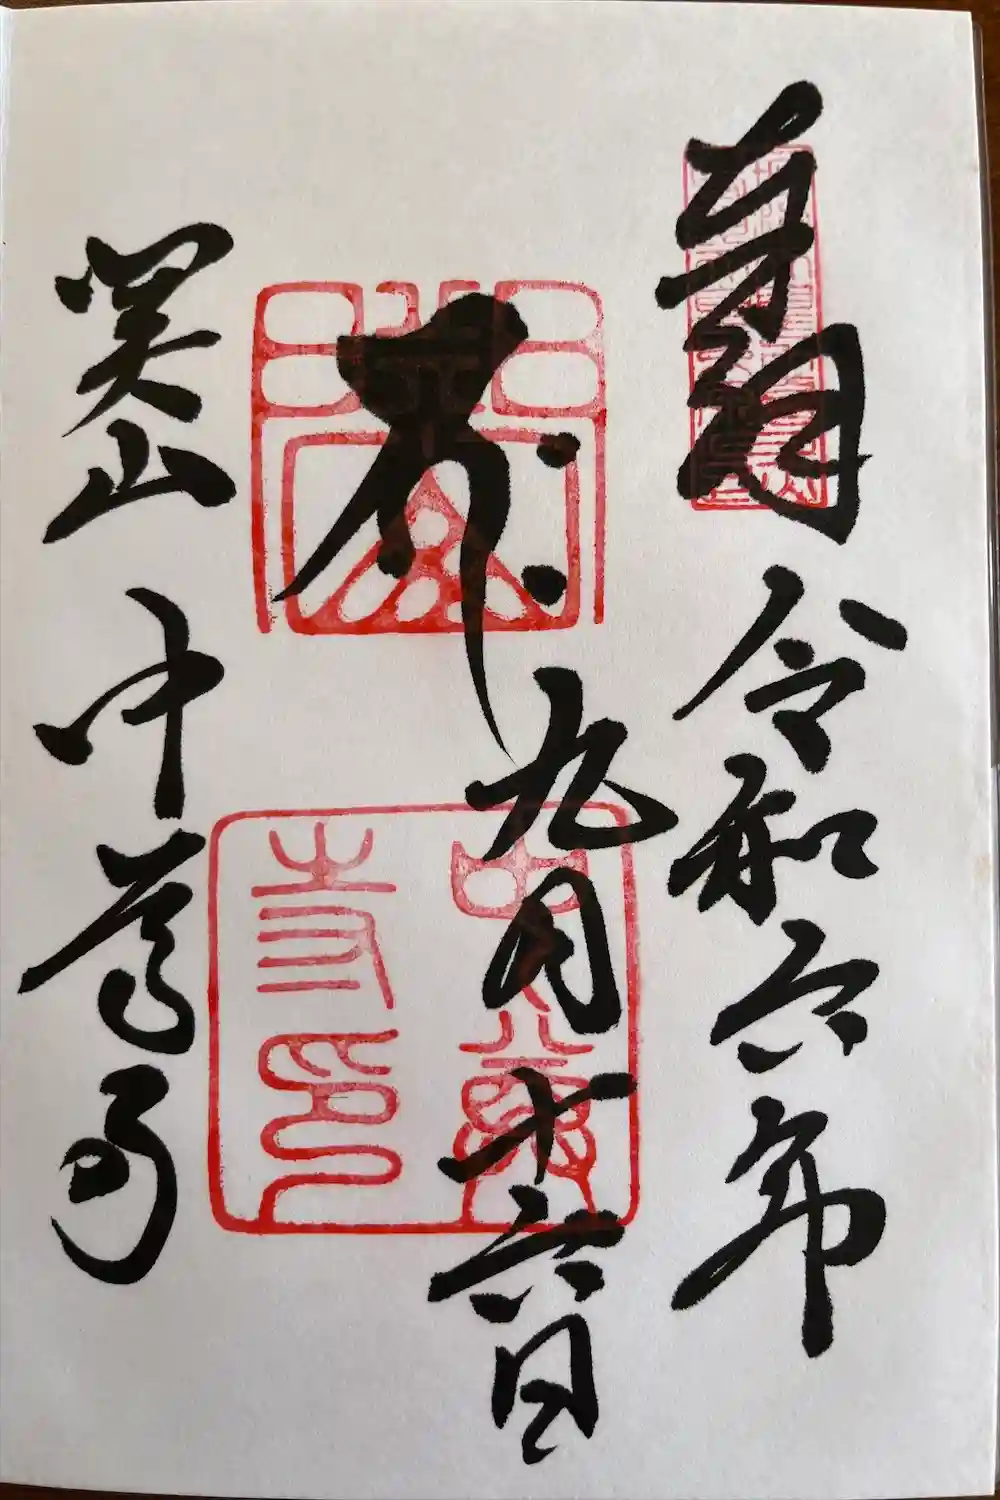 奉拝 令和六年
九月十六日
関山 中尊寺
中尊
寺印